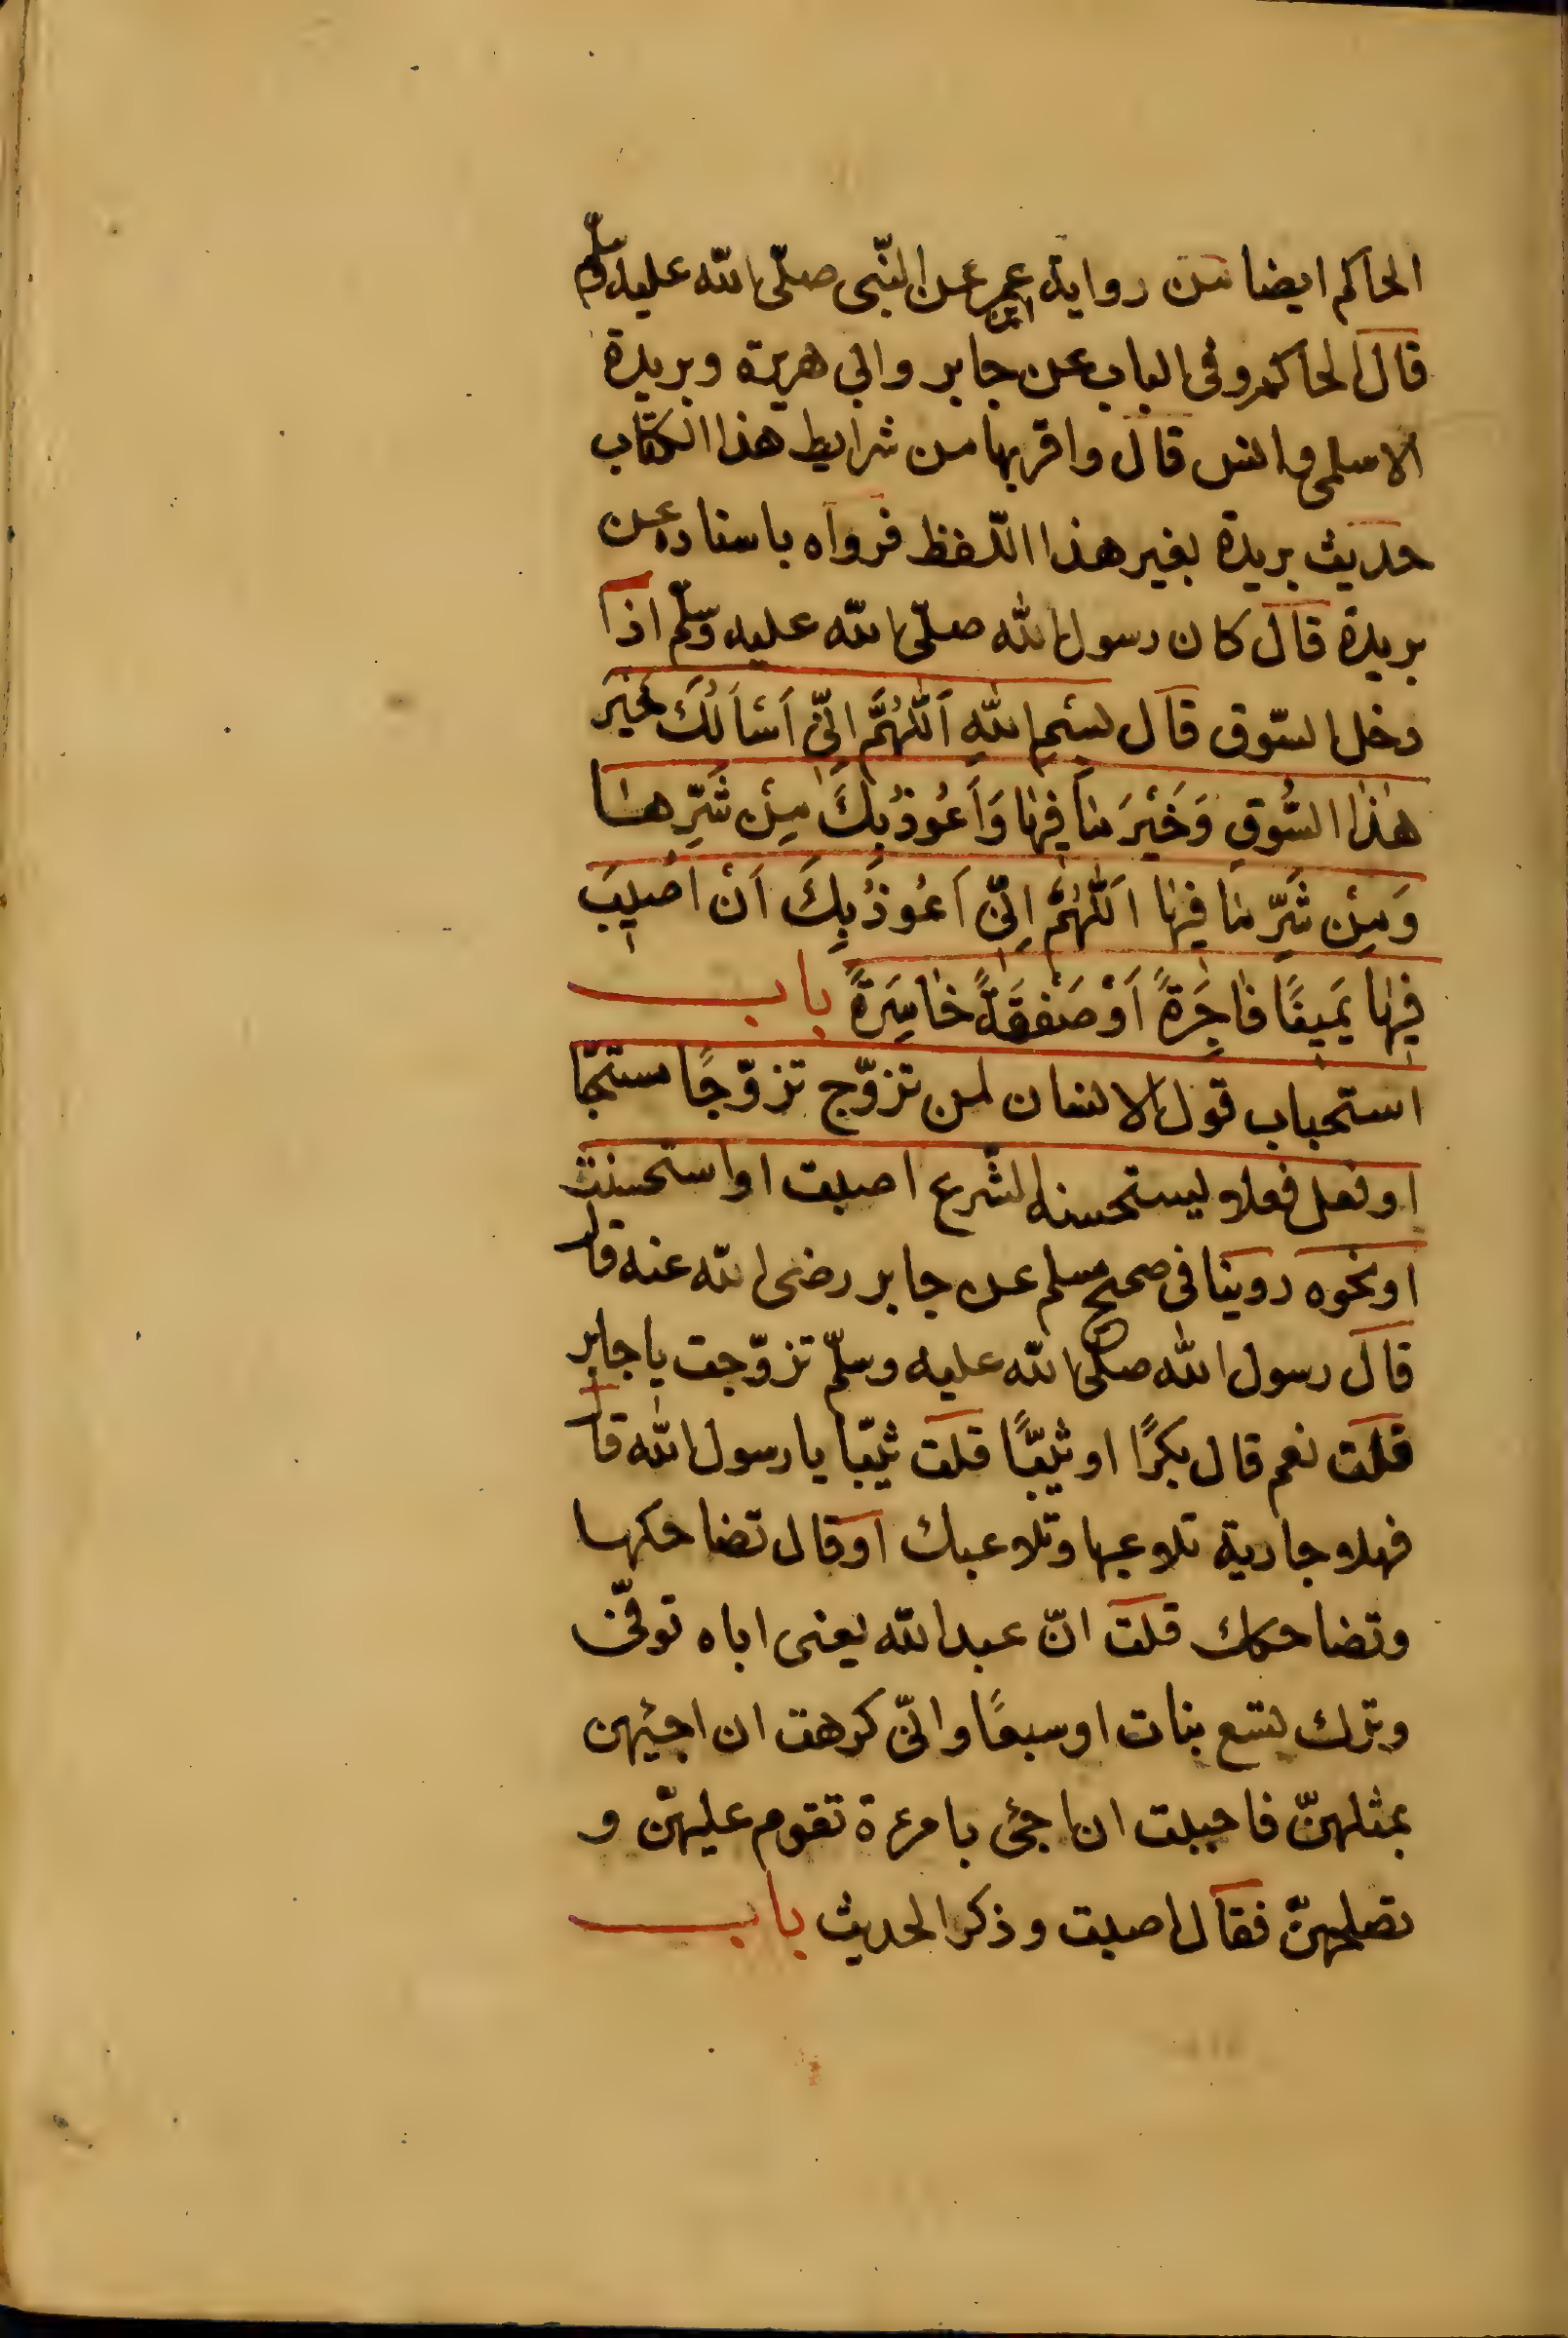 الحاكم ايضا من رواية ابن عمر عن النّبى صلّى الله عليه وسلّم
قال الحاكم وفى الباب عن جابر وابى هريرة وبريدة
الاسلمى وانس قال واقربها من شرايط هذا الكتاب
حديث بريدة بغير هذا اللّفظ فرواه باسناده عن
بريدة قال كان رسول الله صلّى الله عليه وسلّم اذا
دخل السّوق قال بِسْمِ اللهِ اَللّٰهُمَّ اِنّى اَسْاَلُكَ خَيْرَ
هٰذَا السُّوقِ وَخَيْرَ مَا فِيهَا وَاَعُوذُ بِكَ مِنْ شَرِّهَا
وَمِنْ شَرِّ مَا فِيهَا اَللّٰهُمَّ اِنّى اَعُوذُ بِكَ اَنْ اُصِيبَ
فِيهَا يَمِينًا فَاجِرَةً اَوْ صَفْقَةً خَاسِرَةً باب
استحباب قول الانسان لمن تزوّج تزوّجًا مستحبّا
او فعل فعلا يستحسنه الشّرع اصبت او استحسنت
او نحوه روينا فى صحيح مسلم عن جابر رضى الله عنه قال
قال رسول الله صلّى الله عليه وسلّم تزوّجت يا جابر
قلت نعم قال بكرًا او ثيّبًا قلت ثيّبا يا رسول الله قال
فهلا جارية تلاعبها وتلاعبك او قال تضاحكها
وتضاحكك قلت انّ عبد الله يعنى اباه توفّى
وترك تسع بنات او سبعًا وانّى كرهت ان اجيئهن
بمثلهنّ فاحببت ان اجئ بامرءة تقوم عليهنّ و
تصلحهنّ فقال اصبت وذكر الحديث باب